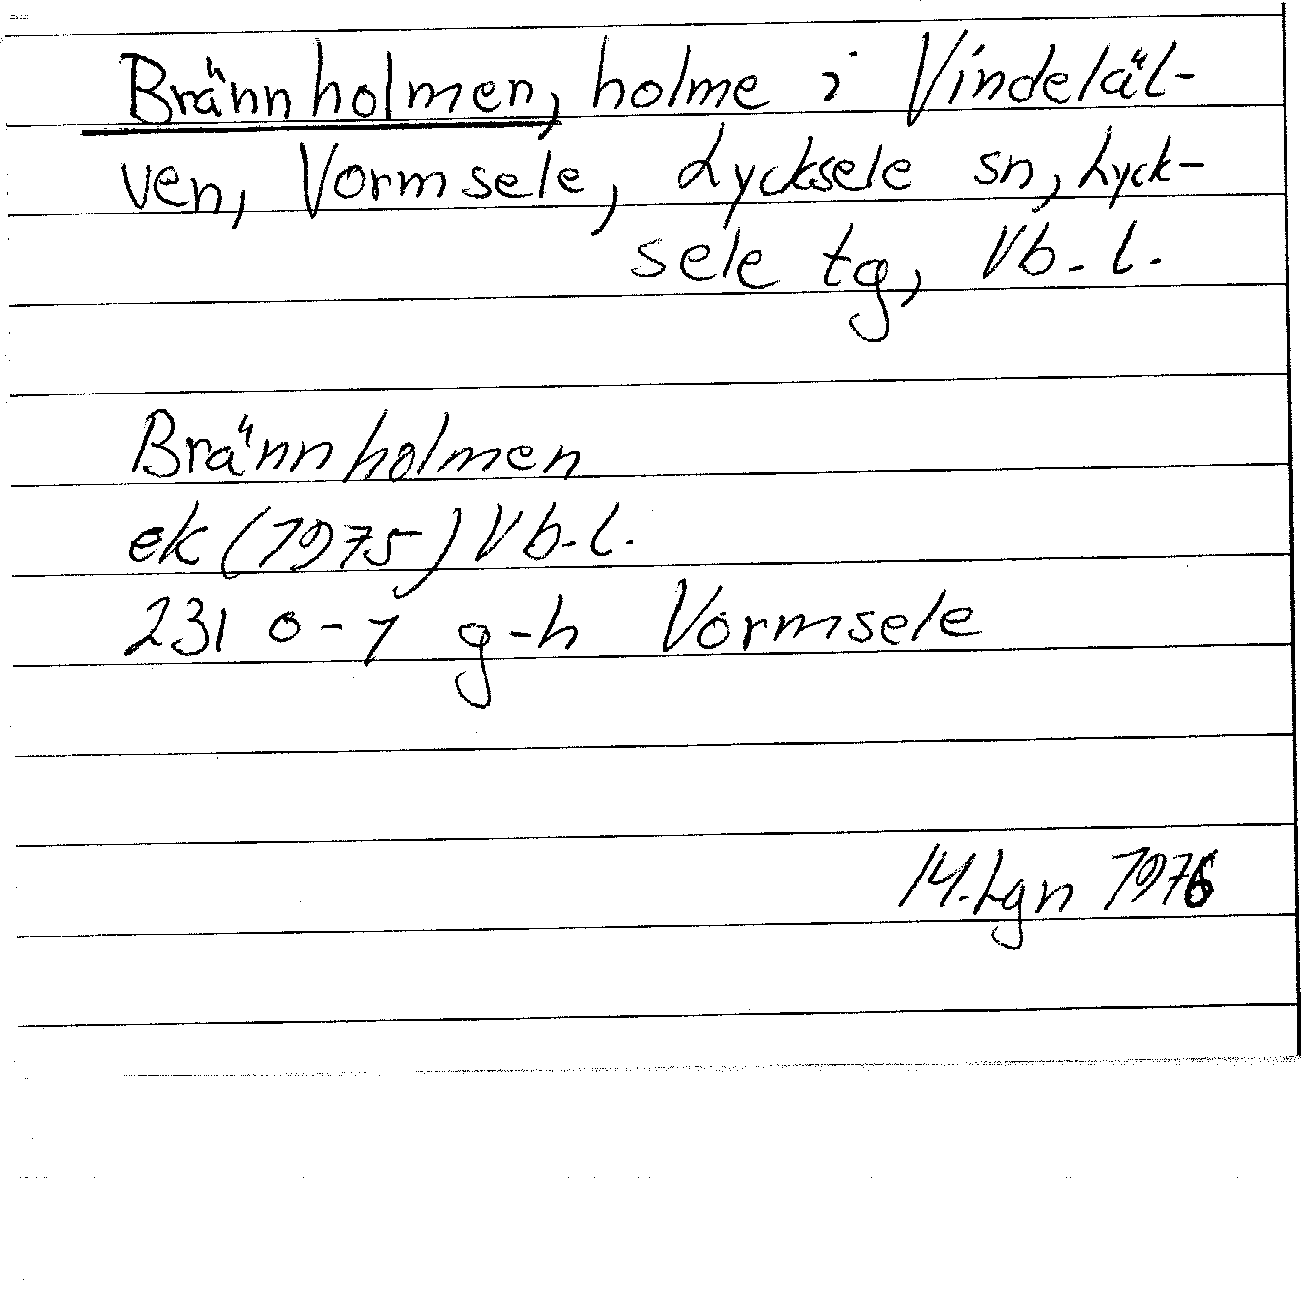 Brännholmen, holme i Vindeläl-
ven, Vormsele, Lycksele sn, Lyck-
sele tg, Vb. l.
Brännholmen
ek (1975) Vb. l.
231 0-1 g-h Vormsele
14. Lgn 1976